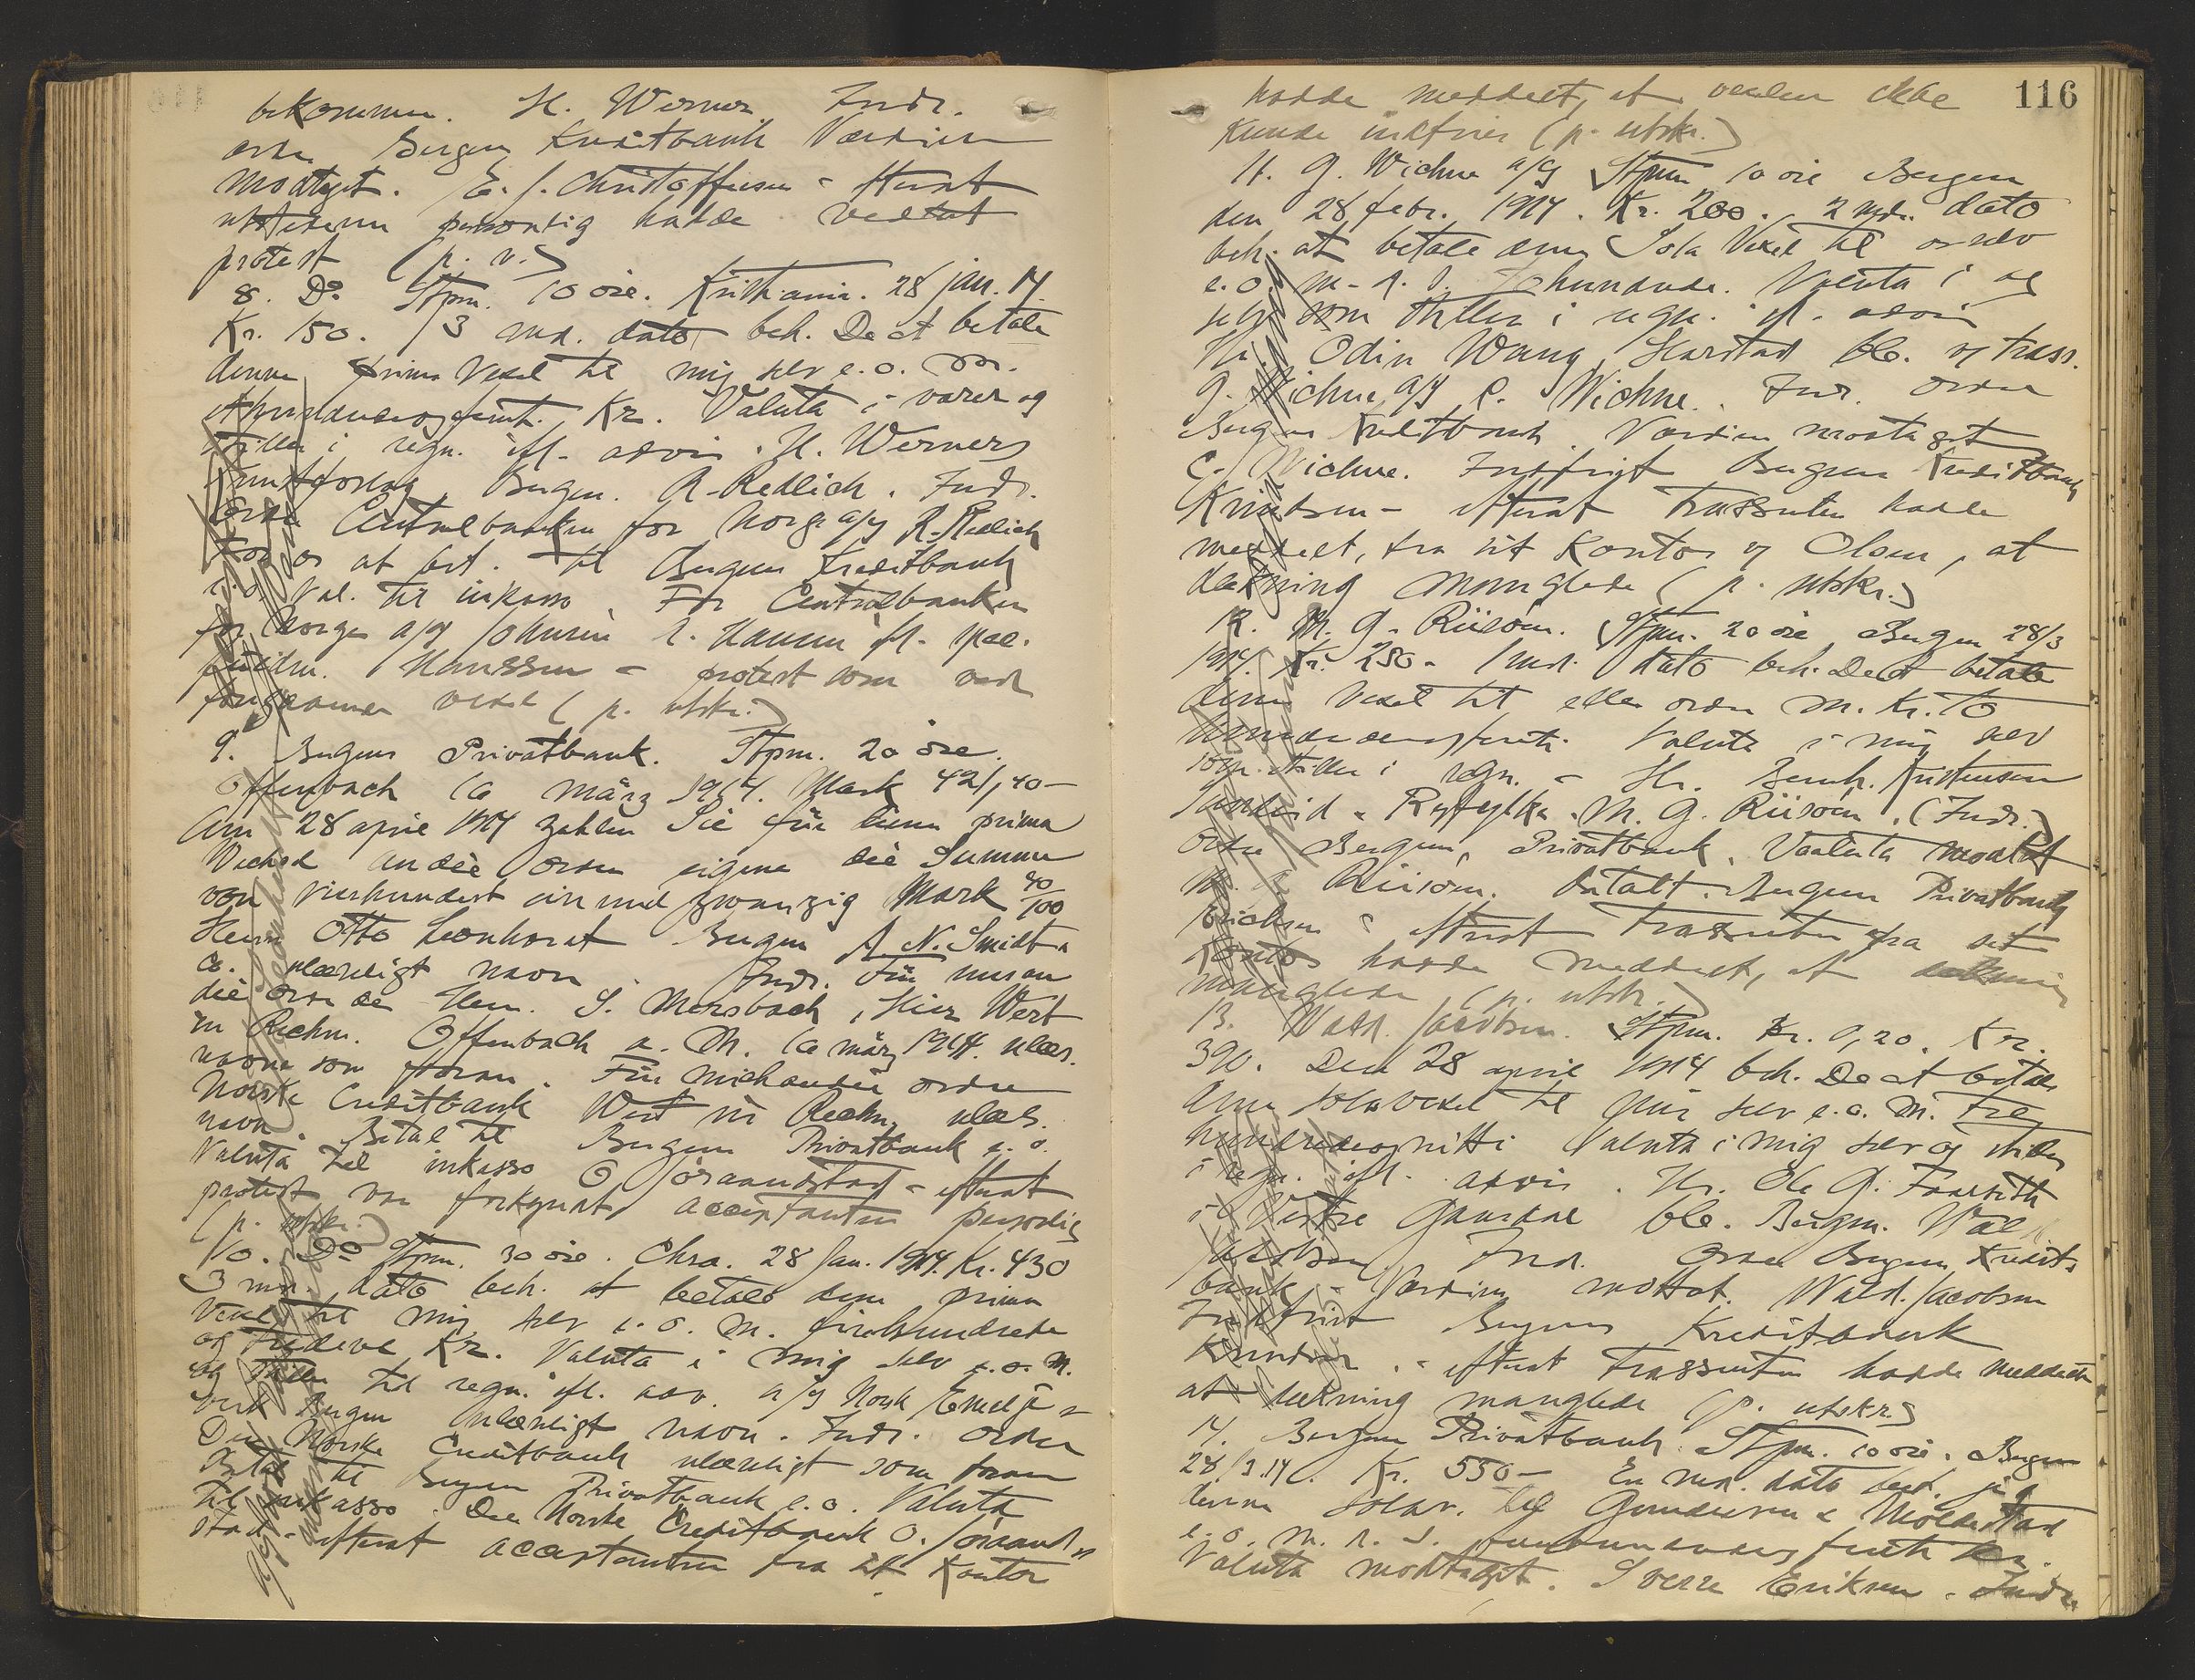 bekommer. H. Werner Indr.
ordre Bergens Kreditbank Værdien
modtaget. E. J. Christoffersen - efterat
utstederen personlig hadde vedtat
protest (p. v.)
8. Do Stpm. 10 øre. Kristiania. 28 jan. 14.
Kr. 150. 3 md. dato beh. De at betale
denne prima Vexel til mig selv e. o. m.
ethundredeogfemti Kr. Valuta i varer og
stilles i regn. ifl. advis. H. Werners
Kunstforlag, Bergen. R. Redlich. Indr.
ordre Centralbanken for Norge a/s R. Redlich
For os at bet. til Bergens Kreditbank
e. o. Val. til inkasso. For Centralbanken
for Norge a/s Hansen ifl. spec.
Hanssen - protest som ved
foregaaende vexel (p. utskr.)
9. Bergens Privatbank. Stpm. 20 øre.
Offenbach 10 März 1914. Mark 421,40 -
Am 28 april 1914 zahlen Sie für diesen prima
Wechsel an die Ordre eigene die Summe
von Vierhundert ein und zwanzig Mark 40/100
Herrn Otto Leonhardt Bergen A. N. Smidt &
Co. ulæseligt navn. Indr. Für uns an
die Ordre des Herrn S. Mersbach, Hier Wert
in Rechn. Offenbach a. M. 10 März 1914. ulæs.
navn som foran. Für mich an die ordre
Norske Creditbank Wert in Rechn. ulæs.
navn. Betal til Bergens Privatbank e. o.
Valuta til inkasso O Joraandstad - efterat
protest var forkyndt acceptanten personlig
(p. utskr.)
10. Do Stpm. 30 øre. Chra. 28 Jan. 1914. Kr. 430
3 md. dato beh. at betale denne prima
Vexel til mig selv e. o. m. firehundrede
og tredeve Kr. Valuta i mig selv e. o. m.
og stilles til regn. ifl. adv. a/s Norsk Emelje-
verk Bergen ulæseligt navn. Indr. ordre
Den Norske Creditbank ulæseligt som foran
Betal til Bergens Privatbank e. o. Valuta
til inkasso. Den Norske Creditbank O. Joraand-
stad - efterat acceptanten fra sit Kontor
116
hadde meddelt, at vexlen ikke
kunde indfries (p. utskr.)
11. G. Wichne a/s Stpm 10 øre Bergen
den 28 febr. 1914. Kr. 200. 2 mdr. dato
beh. at betale denne Sola Vexel til os selv
e. o. m. r. s. Tohundrede. Valuta i os
selv som stilles i regn. ifl. advis
Hr. Odin Wang, Harstad bb. og trass.
G. Wichne a/s C. Wichne. Indr. ordre
Bergens Kreditbank. Værdien mottaget
C. Wichne. Indfriet Bergens Kreditbank
Knudsen - efterat Trassenten hadde
meddelt, fra sit Kontor og Olsen, at
dækning manglede (p. utskr.)
12. M. G. Riisøen. Stpm. 20 øre Bergen 28/3
1914. Kr. 250 - 1 md. dato beh. De at betale
denne Vexel til eller ordre m. Kr. To
hundredeogfemti. Valuta i mig selv
som stilles i regn. - Hr. Bernh. Kristensen
Ryfylke. M. G. Riisøen. (Indr.)
ordre Bergens Privatbank. Valuta modtat
M. G. Riisøen. Betalt. Bergens Privatbank
Erichsen - efterat Trassenten fra sit
Kontor hadde meddelt, at dekning
manglede (p. utskr.)
13. Wald. Jacobsen. Stpm. Kr. 0,20. Kr.
390. Den 28 april 1914 beh. De at betale
denne solavexel til mig selv e. o. m. Tre
hundredeognitti Valuta i mig selv og stilles
i regn. ifl. advis. Hr. Ole G.
i Vestre Gausdal bb. Bergen. Wald
Jacobsen Indr. Ordre Bergens Kredit-
bank - Værdien mottat. Wald. Jacobsen
Indfriet Bergens Kreditbank
Knudsen. - efterat trassenten hadde meddelt
at dækning manglede (p. utskr.)
14. Bergens Privatbank. Stpm. 10 øre. Bergen
28/3.14. Kr. 550 - En md. dato bet. jeg
denne solav. til Gundersen & Moldestad
e. o. m. r. s. femhundredeogfemti Kr.
Valuta modtaget. Sverre Eriksen. Indr.